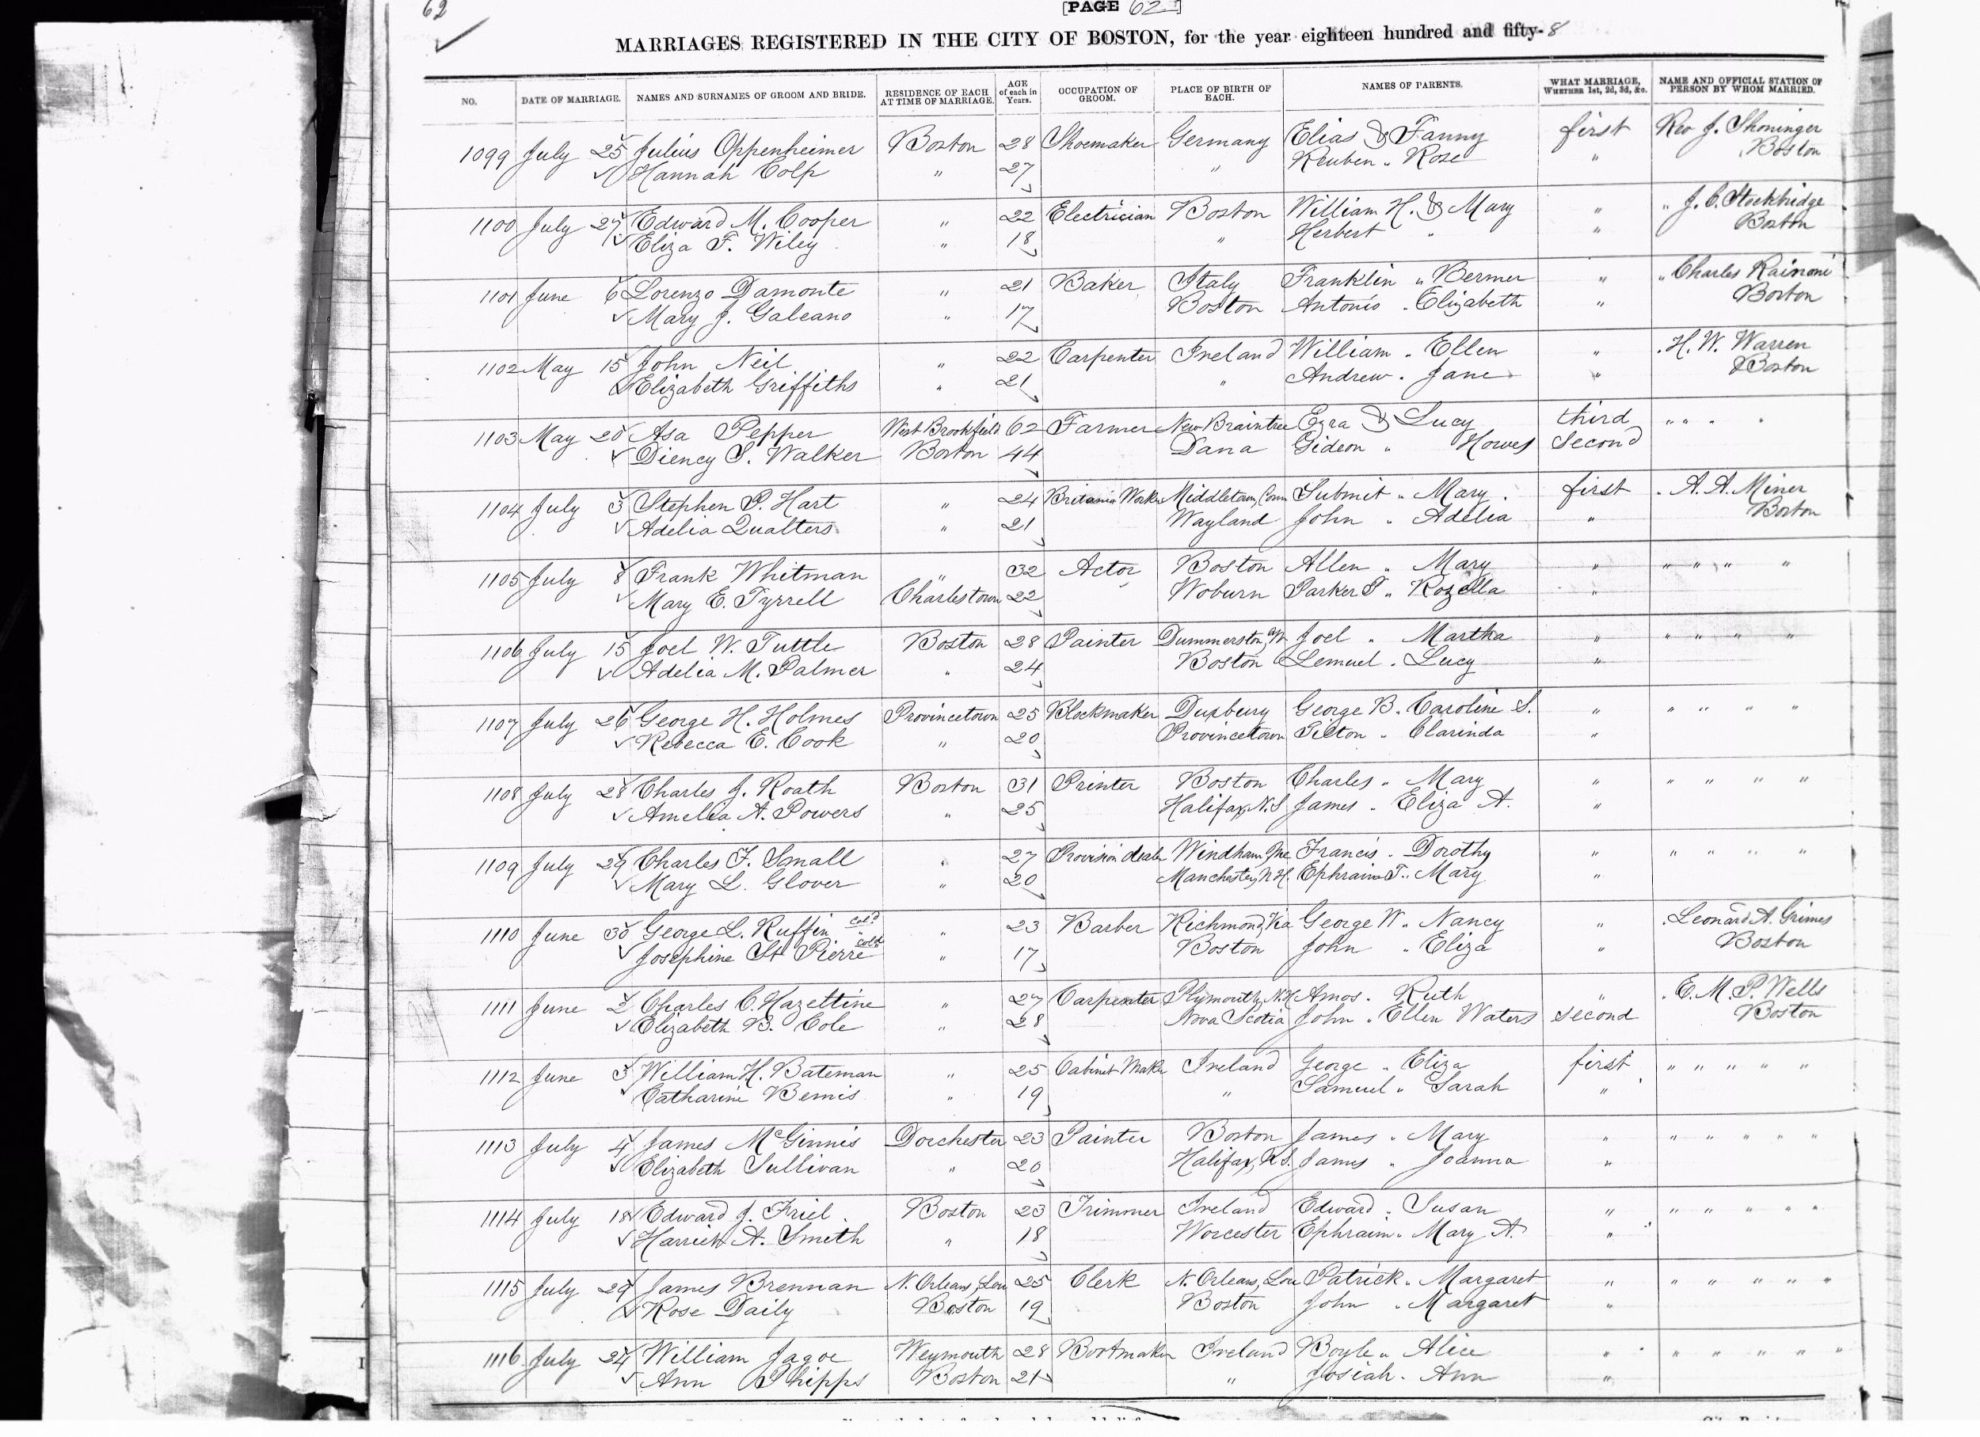 62
[PAGE 62]
MARRIAGES REGISTERED IN THE CITY OF BOSTON, for the year eighteen hundred and fifty-8
NO. DATE OF MARRIAGE. NAMES AND SURNAMES OF GROOM AND BRIDE. RESIDENCE OF EACH AT TIME OF MARRIAGE. AGE of each in Years. OCCUPATION OF GROOM. PLACE OF BIRTH OF EACH. NAMES OF PARENTS. WHAT MARRIAGE, WHETHER 1st, 2d, 3d, &c. NAME AND OFFICIAL STATION OF PERSON BY WHOM MARRIED.
1099 July 25 Julius Oppenheimer Boston 28 Shoemaker Germany Elias & Fanny first Rev J. Shoninger
Hannah Colp " 27 " Reuben " Rose " Boston
1100 July 27 Edward M. Cooper " 22 Electrician Boston William H. & Mary " " J. C. Stockbridge
Eliza F. Wiley " 18 " Herbert " " Boston
1101 June 6 Lorenzo Damonte " 21 Baker Italy Franklin " Bermer " " Charles Rainoni
Mary J. Galeano " 17 Boston Antonio " Elizabeth " Boston
1102 May 15 John Neil " 22 Carpenter Ireland William " Ellen " " H. W. Warren
Elizabeth Griffiths " 21 " Andrew " Jane " Boston
1103 May 20 Asa Pepper West Brookfield 62 Farmer New Braintree Ezra & Lucy third " " " "
Diency S. Walker Boston 44 Dana Gideon " Howes Second
1104 July 3 Stephen P. Hart " 24 Britania Worker Middletown, Conn Submit " Mary first " A. A. Miner
Adelia Qualters " 21 Wayland John " Adelia " Boston
1105 July 8 Frank Whitman " 32 Actor Boston Allen " Mary " " " " "
Mary E. Tyrrell Charlestown 22 Woburn Parker T. " Rozella "
1106 July 15 Joel W. Tuttle Boston 28 Painter Dummerston, Vt Joel " Martha " " " " "
Adelia M. Palmer " 24 Boston Lemuel " Lucy "
1107 July 26 George H. Holmes Provincetown 25 Blockmaker Duxbury George B. " Caroline S. " " " " "
Rebecca E. Cook " 20 Provincetown Tilton " Clarinda "
1108 July 28 Charles J. Roath Boston 31 Printer Boston Charles " Mary " " " " "
Amelia A. Powers " 25 Halifax, N.S. James " Eliza A. "
1109 July 29 Charles F. Small " 27 Provision dealer Windham, Me Francis " Dorothy " " " " "
Mary L. Glover " 20 Manchester, N.H. Ephraim T. " Mary "
1110 June 30 George L. Ruffin col'd " 23 Barber Richmond, Va George W. " Nancy " " Leonard A. Grimes
Josephine St Pierre col'd " 17 Boston John " Eliza " Boston
1111 June 2 Charles C. Hazeltine " 27 Carpenter Plymouth, N.H. Amos " Ruth " " E. M. P. Wells
Elizabeth B. Cole " 28 Nova Scotia John " Ellen Waters second Boston
1112 June 3 William H. Bateman " 25 Cabinet Maker Ireland George " Eliza first " " " " "
Catharine Bemis " 19 " Samuel " Sarah "
1113 July 4 James McGinnis Dorchester 23 Painter Boston James " Mary " " " " " "
Elizabeth Sullivan " 20 Halifax, N.S. James " Joanna "
1114 July 18 Edward J. Friel Boston 23 Trimmer Ireland Edward " Susan " " " " " "
Harriet A. Smith " 18 Worcester Ephraim " Mary A. "
1115 July 29 James Brennan N. Orleans, Lou 25 Clerk N. Orleans, Lou Patrick " Margaret " " " " " "
Rose Daily Boston 19 Boston John " Margaret "
1116 July 24 William Jagoe Weymouth 28 Bootmaker Ireland Boyle " Alice " " " " " "
Ann Phipps Boston 21 " Josiah " Ann "